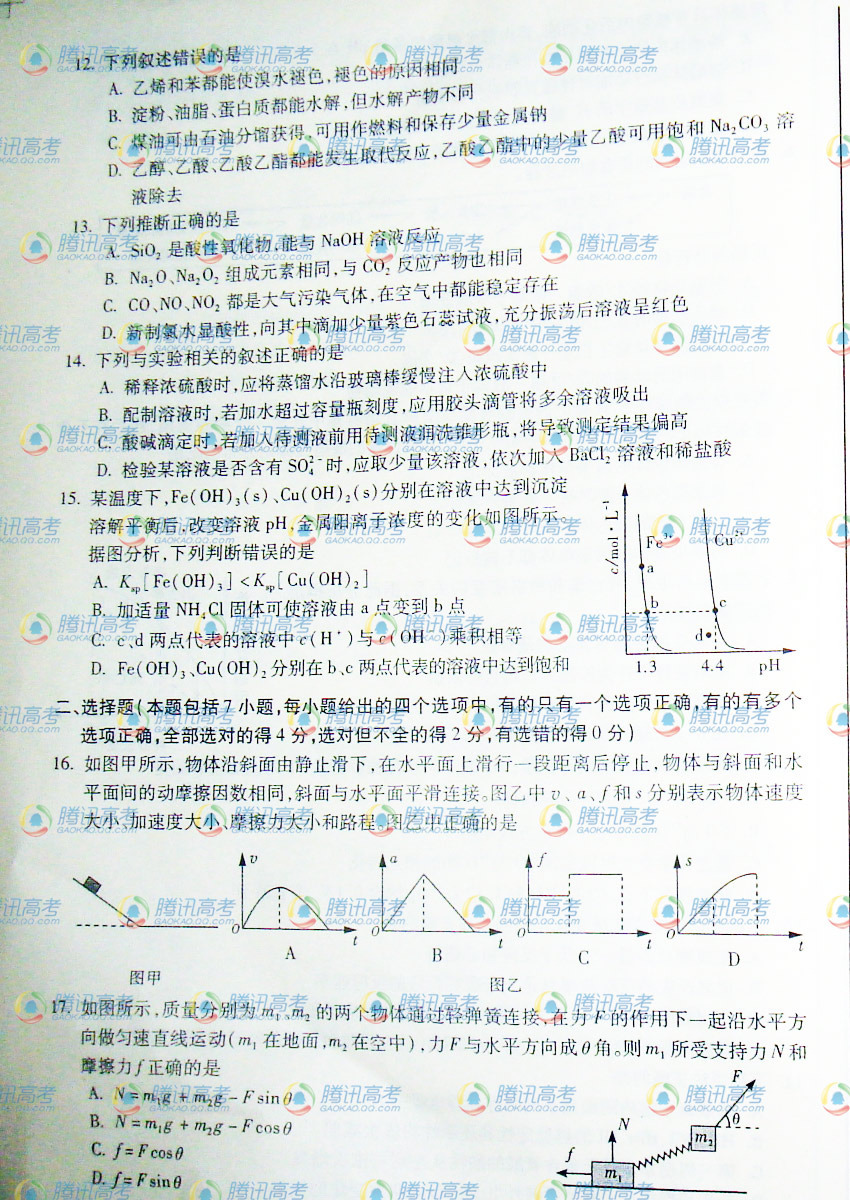 12. 下列叙述错误的是
A. 乙烯和苯都能使溴水褪色,褪色的原因相同
B. 淀粉、油脂、蛋白质都能水解,但水解产物不同
C. 煤油可由石油分馏获得,可用作燃料和保存少量金属钠
D. 乙醇、乙酸、乙酸乙酯都能发生取代反应,乙酸乙酯中的少量乙酸可用饱和 Na₂CO₃ 溶
液除去
13. 下列推断正确的是
A. SiO₂ 是酸性氧化物,能与 NaOH 溶液反应
B. Na₂O、Na₂O₂ 组成元素相同,与 CO₂ 反应产物也相同
C. CO、NO、NO₂ 都是大气污染气体,在空气中都能稳定存在
D. 新制氯水显酸性,向其中滴加少量紫色石蕊试液,充分振荡后溶液呈红色
14. 下列与实验相关的叙述正确的是
A. 稀释浓硫酸时,应将蒸馏水沿玻璃棒缓慢注入浓硫酸中
B. 配制溶液时,若加水超过容量瓶刻度,应用胶头滴管将多余溶液吸出
C. 酸碱滴定时,若加入待测液前用待测液润洗锥形瓶,将导致测定结果偏高
D. 检验某溶液是否含有 SO₄²⁻ 时,应取少量该溶液,依次加入 BaCl₂ 溶液和稀盐酸
15. 某温度下,Fe(OH)₃(s)、Cu(OH)₂(s)分别在溶液中达到沉淀
溶解平衡后,改变溶液 pH,金属阳离子浓度的变化如图所示。
据图分析,下列判断错误的是
A. Ksp[Fe(OH)₃]<Ksp[Cu(OH)₂]
B. 加适量 NH₄Cl 固体可使溶液由 a 点变到 b 点
C. c、d 两点代表的溶液中 c(H⁺)与 c(OH⁻)乘积相等
D. Fe(OH)₃、Cu(OH)₂分别在 b、c 两点代表的溶液中达到饱和
c/mol·L⁻¹
Fe³⁺
Cu²⁺
a
b
c
d
1.3 4.4 pH
二、选择题(本题包括 7 小题,每小题给出的四个选项中,有的只有一个选项正确,有的有多个
选项正确,全部选对的得 4 分,选对但不全的得 2 分,有选错的得 0 分)
16. 如图甲所示,物体沿斜面由静止滑下,在水平面上滑行一段距离后停止,物体与斜面和水
平面间的动摩擦因数相同,斜面与水平面平滑连接。图乙中 v、a、f 和 s 分别表示物体速度
大小、加速度大小、摩擦力大小和路程。图乙中正确的是
v a f s
O t O t O t O t
A B C D
图甲 图乙
17. 如图所示,质量分别为 m₁、m₂ 的两个物体通过轻弹簧连接,在力 F 的作用下一起沿水平方
向做匀速直线运动(m₁ 在地面,m₂ 在空中),力 F 与水平方向成 θ 角。则 m₁ 所受支持力 N 和
摩擦力 f 正确的是
A. N=m₁g+m₂g-Fsinθ
B. N=m₁g+m₂g-Fcosθ
C. f=Fcosθ
D. f=Fsinθ
F
θ
m₂
N
f
m₁
腾讯高考
GAOKAO.QQ.COM